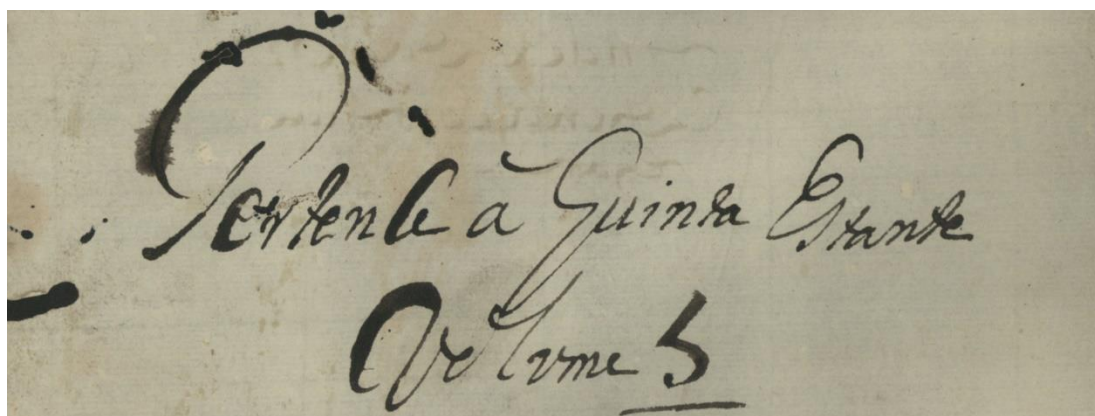 Pertence â Quinta Estante
Volume 5